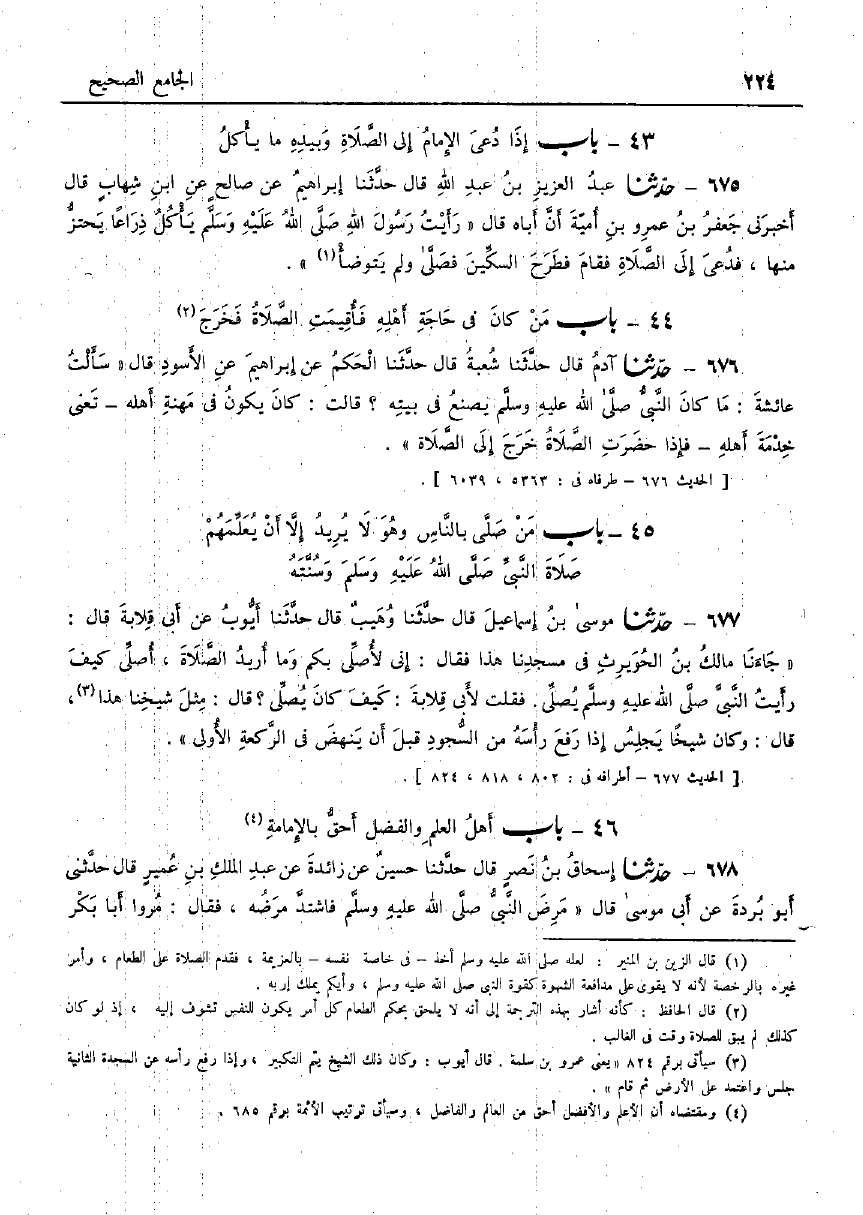 ٢٢٤ الجامع الصحيح
٤٣ – باب إِذَا دُعىَ الإِمامُ إلى الصَّلَاةِ وَبِيدِهِ ما يأْكلُ
٦٧٥ – حدّثنا عبدُ العزيزِ بنُ عبدِ اللهِ قال حدَّثَنا إبراهيمُ عن صالحٍ عنِ ابنِ شِهابٍ قال
أَخبرَنى جَعفرُ بنُ عمرِو بنِ أُميّةَ أَنَّ أَباه قال « رَأَيْتُ رَسُولَ اللهِ صَلَّى اللهُ عَلَيْهِ وَسَلَّم يَأْكُلُ ذِرَاعًا يَحتزُّ
منها ، فَدُعىَ إِلَى الصَّلاةِ فقامَ فطَرَحَ السكِّينَ فصَلَّىٰ ولم يَتوضأْ(١) » .
٤٤ – باب مَنْ كانَ فى حَاجَةِ أَهْلِهِ فَأُقِيمَتِ الصَّلَاةُ فَخَرَجَ(٢)
٦٧٦ – حدّثنا آدمُ قال حدَّثَنا شُعبةُ قال حدَّثَنا الْحَكمُ عن إبراهيمَ عنِ الأَسودِ قال « سَأَلْتُ
عائشةَ : مَا كانَ النَّبىُّ صلَّىٰ الله عليهِ وسلَّم يصنعُ فى بيتِه ؟ قالت : كانَ يكونُ فى مَهنةِ أَهله – تَعنى
خِدْمَةَ أَهلهِ – فإذا حضَرَتِ الصَّلاةُ خَرَجَ إِلَى الصَّلاة » .
[ الحديث ٦٧٦ – طرفاه فى : ٥٣٦٣ ، ٦٠٣٩ ] .
٤٥ – باب مَنْ صَلَّى بالنَّاسِ وهُوَ لَا يُرِيدُ إِلَّا أَنْ يُعَلِّمَهُمْ
صَلَاةَ النَّبىِّ صَلَّى اللهُ عَلَيْهِ وَسَلَّمَ وَسُنَّتَهُ
٦٧٧ – حدّثنا موسىٰ بنُ إسماعيلَ قال حدَّثَنا وُهَيبٌ قال حدَّثَنا أَيُّوبُ عن أَبى قِلابةَ قال :
« جَاءَنَا مالكُ بنُ الحُوَيرثِ فى مسجدِنا هذا فقال : إنى لأُصلِّى بكم وَما أُريدُ الصَّلَاةَ ، أُصلِّى كيفَ
رأَيتُ النَّبىَّ صلَّى الله عليهِ وسلَّم يُصلِّى . فقلت لأَبى قِلابةَ : كَيفَ كانَ يُصلِّى ؟ قال : مِثلَ شيخِنا هذا(٣) ،
قال : وكان شيخًا يَجلِسُ إذا رَفعَ رأْسَهُ من السُّجودِ قبلَ أَن يَنهضَ فى الرَّكعةِ الأُولى » .
[ الحديث ٦٧٧ – أطرافه فى : ٨٠٢ ، ٨١٨ ، ٨٢٤ ] .
٤٦ – باب أَهلُ العلمِ والفضلِ أَحقُّ بالإِمامةِ(٤)
٦٧٨ – حدّثنا إسحاقُ بنُ نصرٍ قال حدَّثَنا حسينٌ عن زائدةَ عن عبدِ الملكِ بنِ عُميرٍ قال حدَّثَنى
أَبو بُردةَ عن أَبى موسىٰ قال « مَرِضَ النَّبىُّ صلَّى الله عليهِ وسلَّم فاشتدَّ مرَضُه ، فقال : مُروا أَبا بَكْر
(١) قال الزين بن المنير : لعله صلى الله عليه وسلم أخذ – فى خاصة نفسه – بالعزيمة ، فقدم الصلاة على الطعام ، وأمر
غيره بالرخصة لأنه لا يقوى على مدافعة الشهوة كقوة النبى صلى الله عليه وسلم ، وأيكم يملك إربه .
(٢) قال الحافظ : كأنه أشار بهذه الترجمة إلى أنه لا يلحق بحكم الطعام كل أمر يكون للنفس تشوف إليه ، إذ لو كان
كذلك لم يبق للصلاة وقت فى الغالب .
(٣) سيأتى برقم ٨٢٤ « يعنى عمرو بن سلمة . قال أيوب : وكان ذلك الشيخ يتم التكبير ، وإذا رفع رأسه عن السجدة الثانية
جلس واعتمد على الأرض ثم قام » .
(٤) ومقتضاه أن الأعلم والأفضل أحق من العالم والفاضل ، وسيأتى ترتيب الأئمة برقم ٦٨٥ .